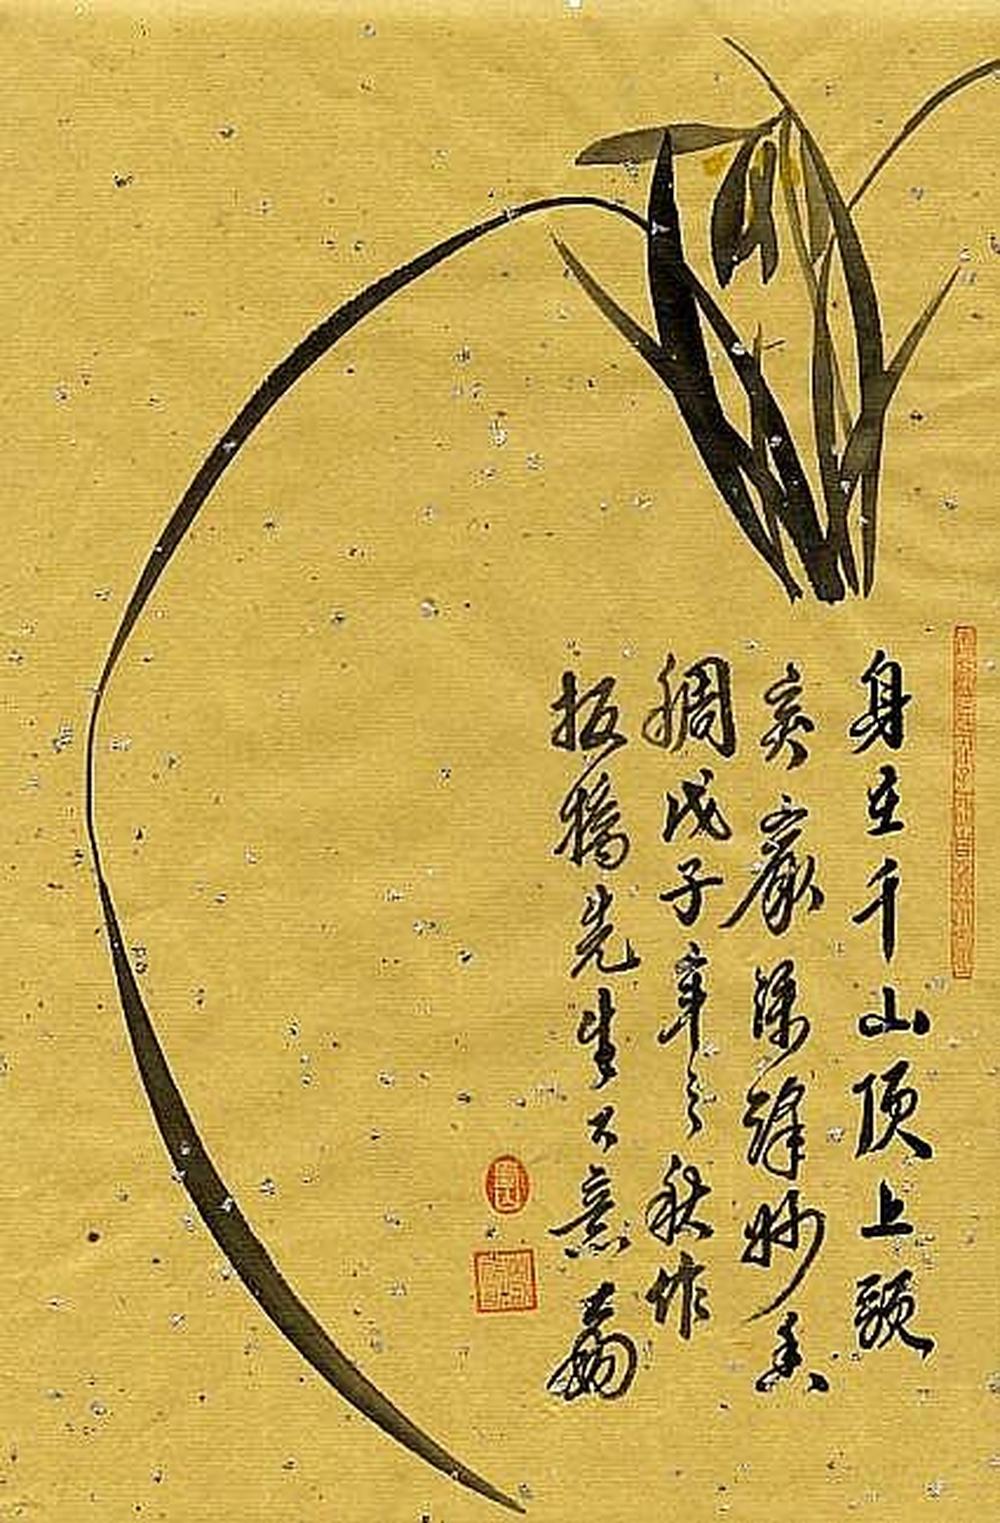 身在千山顶上头
突岩深缝妙香
稠戊子年之秋作
板桥先生不意万